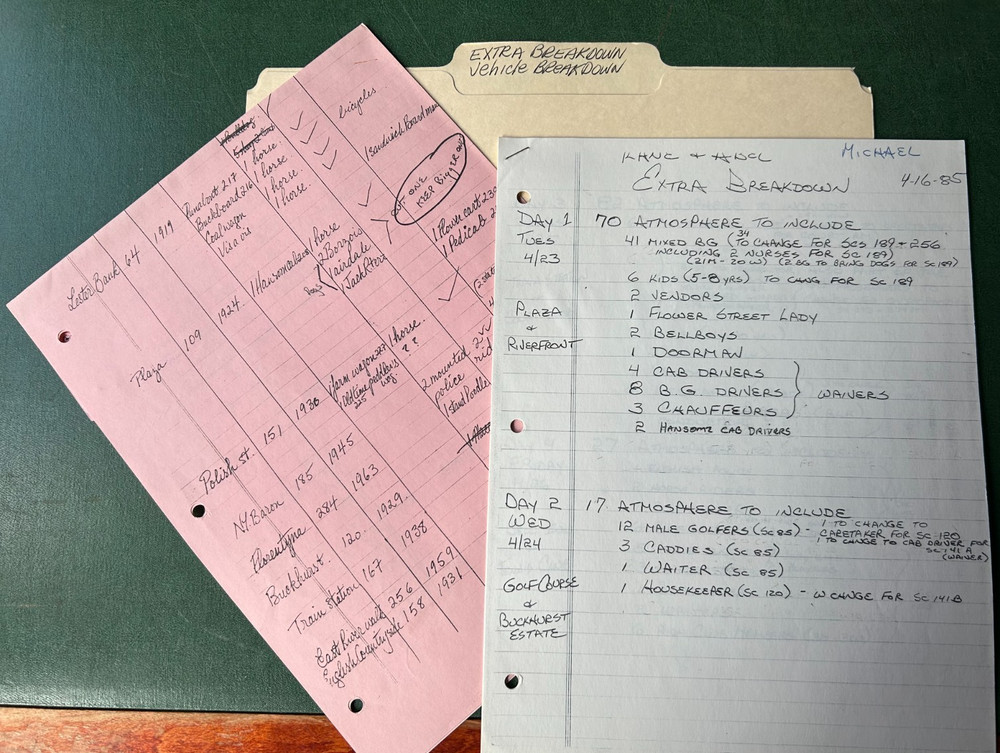 EXTRA BREAKDOWN
Vehicle BREAKDOWN
KANE & ABEL
MICHAEL
EXTRA BREAKDOWN
4-16-85
DAY 1
TUES
4/23
PLAZA
&
RIVERFRONT
70 ATMOSPHERE TO INCLUDE
41 MIXED BG (34 TO CHANGE FOR SCS 189 + 256
INCLUDING 2 NURSES FOR SC 189)
(21M - 20W) (2 BG TO BRING DOGS FOR SC 189)
6 KIDS (5-8 YRS) TO CHNG FOR SC 189
2 VENDORS
1 FLOWER STREET LADY
2 BELLBOYS
1 DOORMAN
4 CAB DRIVERS
8 B.G. DRIVERS
3 CHAUFFEURS
WAIVERS
2 HANSOME CAB DRIVERS
DAY 2
WED
4/24
GOLF COURSE
&
BUCKHURST
ESTATE
17 ATMOSPHERE TO INCLUDE
12 MALE GOLFERS (SC 85) - 1 TO CHANGE TO
CARETAKER FOR SC 120
1 TO CHANGE TO CAB DRIVER FOR
SC 141A
(WAIVER)
3 CADDIES (SC 85)
1 WAITER (SC 85)
1 HOUSEKEEPER (SC 120) - W CHANGE FOR SC 141B
Lester Bank 64 1919
Runabout 217 1 horse.
Buckboard 216 1 horse.
Coal wagon 1 horse.
Vis a vis 1 horse.
bicycles
1 sandwich board man
Plaza 109 1924
1 Hansom cab 1 horse
2 Borzois
1 airdale
1 Jack Terr
ONE
KEEP BIN
1 Flower cart 230
1 Pedicab
Polish st. 151 1930
1 farm wagon 227 1 horse.
1 Oldtime peddlers wag. 225 ??
N.Y. Baron 185 1945
2 mounted
police
1 stand Poodle
Florentyna 284 1963
Buckhurst 120 1929
Train Station 167 1938
East River walk 256 1959
English Countryside 158 1931